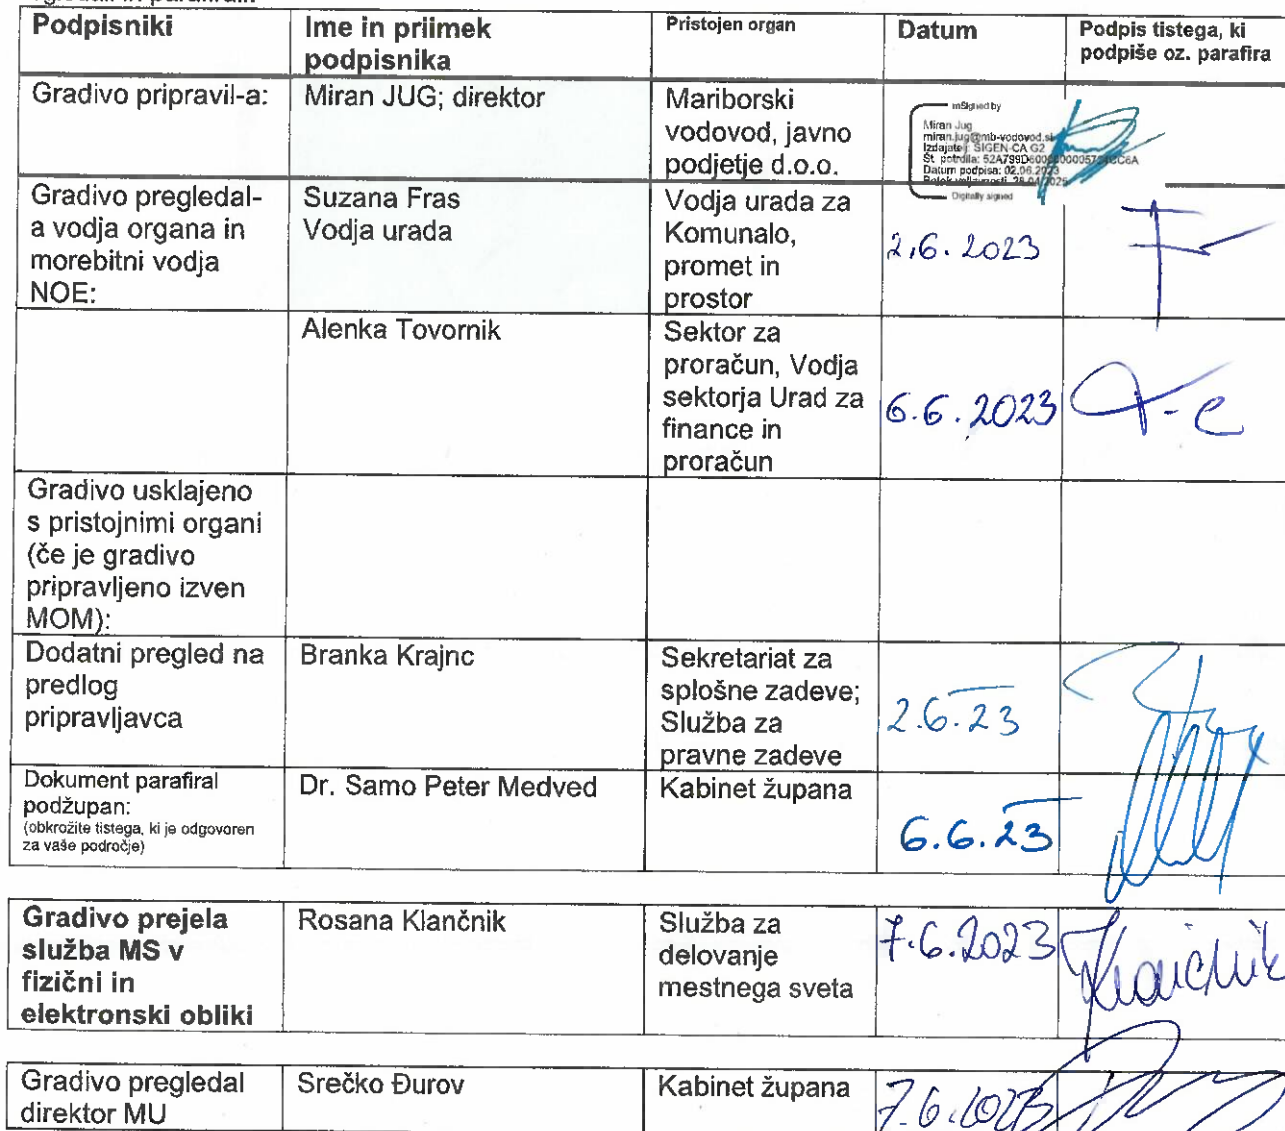 Podpisniki
Ime in priimek
podpisnika
Pristojen organ
Datum
Podpis tistega, ki
podpiše oz. parafira
Gradivo pripravil-a:
Miran JUG; direktor
Mariborski
vodovod, javno
podjetje d.o.o.
mSigned by
Miran Jug
miran.jug@mb-vodovod.si
Izdajatelj: SIGEN-CA G2
Št. potrdila:
Datum podpisa: 02.06.2023
Digitally signed
Gradivo pregledal-
a vodja organa in
morebitni vodja
NOE:
Suzana Fras
Vodja urada
Vodja urada za
Komunalo,
promet in
prostor
2.6.2023
Alenka Tovornik
Sektor za
proračun, Vodja
sektorja Urad za
finance in
proračun
6.6.2023
Gradivo usklajeno
s pristojnimi organi
(če je gradivo
pripravljeno izven
MOM):
Dodatni pregled na
predlog
pripravljavca
Branka Krajnc
Sekretariat za
splošne zadeve;
Služba za
pravne zadeve
2.6.23
Dokument parafiral
podžupan:
(obkrožite tistega, ki je odgovoren
za vaše področje)
Dr. Samo Peter Medved
Kabinet župana
6.6.23
Gradivo prejela
služba MS v
fizični in
elektronski obliki
Rosana Klančnik
Služba za
delovanje
mestnega sveta
7.6.2023
Klančnik
Gradivo pregledal
direktor MU
Srečko Đurov
Kabinet župana
7.6.2023